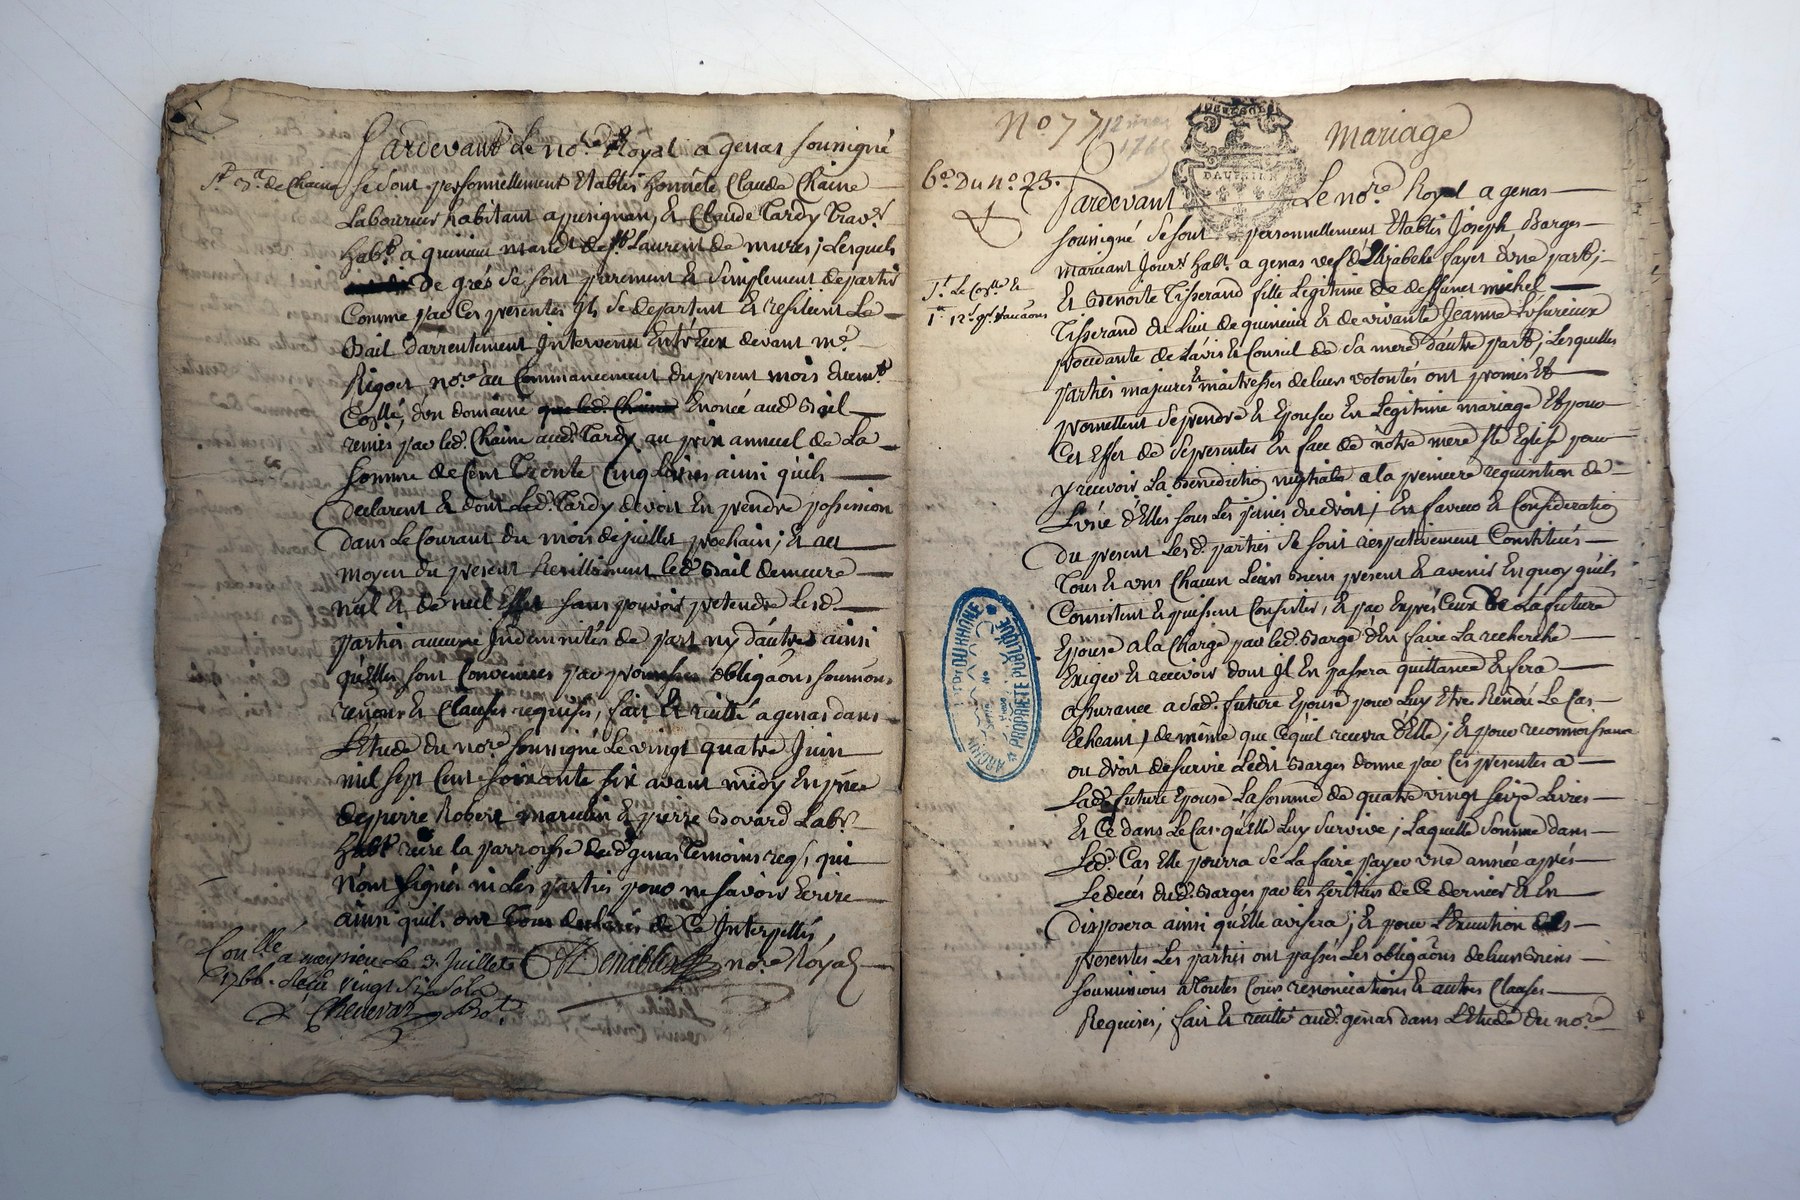 Pardevant Le no.re Royal a genas soussigné
se sont personnellement Etablis honnete Claude Chaine
Laboureur habitant a pusignan, et Claude Tardy Trav.r
hab.t a quinieu mand.t de s.t Laurent de mures; Lesquels
de grés se sont purement et simplement departis
Comme par Ces presentes ils se departent et resilient Le
Bail d'arrentement Intervenu Entr'Eux devant m.e
Rigoet no.re au Commancement du present mois duem.t
Con.llé, d'un domaine que led. Chaine Enoncé aud. Bail
remis par led. Chaine aud. Tardy au prix annuel de La
somme de Cent Trente Cinq Livres ainsi qu'ils
declarent et dont Led. Tardy devoit En prendre possession
dans Le Courant du mois de juillet prochain; et au
moyen du present Resiliment led. Bail demeure
nul et de nul Effet sans pouvoir pretendre Lesd.
parties aucune Indemnités de part ny d'autres ainsi
qu'Elles sont Convenües par promesses obligãons soumons.
renons et Clauses requises, fait et recitté a genas dans
L'Etude du no.re soussigné Le vingt quatre Juin
mil sept Cent soixante six avant midy En pñce
de pierre Robert marculin et pierre Bovard Lab.rs
hab.t riere la parroisse dud. genas Temoins req.s qui
N'ont signés ni Les parties pour ne savoir Ecrire
ainsi quils ont Tous declarés de Ce Interpellés,
no.re Royal
Con.llé a meysieu Le 3. Juillet
1766. Reçu vingt six sols
N.o 77
12 mars
1766
Mariage
6.e Du n.o 23.
DAUPHINE
Pardevant Le no.re Royal a genas
soussigné se sont personnellement Etablis Joseph Barges
manant Jour.r hab.t a genas vef d'Elizabeth fayet d'une part;
et Benoite Tisserand fille Legitime de deffunt michel
Tisserand du Lieu de quinieu et de vivante Jeanne
procedante de L'avis et Conseil de sa mere d'autre part; Lesquelles
parties majeures et maitresses de leurs volontés ont promis et
promettent se prendre et Epouser En Legitime mariage et pour
Cet Effet de se presenter En face de nôtre mere s.te Eglise pour
y recevoir La Benediction nuptiale a la premiere requisition de
L'une d'Elles sous Les peines du droit; En faveur et Consideration
du present Lesd. parties se sont respectivement Constitués
Tous et uns Chacun Leurs Biens present et avenir En quoy qu'ils
Consistent et puissent Consister, et par Exprés Ceux de La future
Epouse a la Charge par led. Barge d'En faire La recherche
Exiger et recevoir dont Il En passera quittance et fera
assurance a sad. future Epouse pour Luy Etre Rendu Le Cas
Echeant, de même que Ce qu'il recevra d'Elle; et pour reconnoissance
ou droit de survie Ledit Barges donne par Ces presentes a
Lad. future Epouse La somme de quatre vingt seize Livres
et Ce dans Le Cas qu'Elle Luy survive; Laquelle somme dans
Led. Cas Elle pourra se La faire payer une année aprés
Le decés dud. Barges par Les heritiers de Ce dernier et En
disposera ainsi qu'Elle avisera; et pour L'Execution des
presentes Les parties ont passés Les obligãons de leurs Biens
soumissions a Toutes Cours renonciations et autres Clauses
Requises; fait et recitté aud. genas dans L'Etude du no.re
DU RHONE
PROPRIETE PUBLIQUE